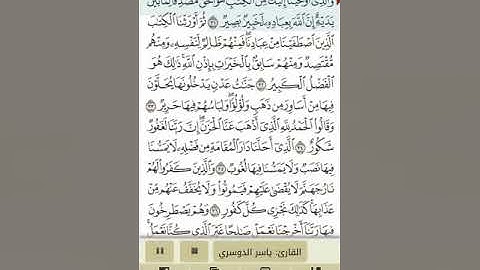 وَالَّذِي أَوْحَيْنَا إِلَيْكَ مِنَ الْكِتَٰبِ هُوَ الْحَقُّ مُصَدِّقًا لِّمَا بَيْنَ
يَدَيْهِ إِنَّ اللَّهَ بِعِبَادِهِ لَخَبِيرٌ بَصِيرٌ ٣١ ثُمَّ أَوْرَثْنَا الْكِتَٰبَ
الَّذِينَ اصْطَفَيْنَا مِنْ عِبَادِنَا فَمِنْهُمْ ظَالِمٌ لِّنَفْسِهِ وَمِنْهُم
مُّقْتَصِدٌ وَمِنْهُمْ سَابِقٌ بِالْخَيْرَٰتِ بِإِذْنِ اللَّهِ ذَٰلِكَ هُوَ
الْفَضْلُ الْكَبِيرُ ٣٢ جَنَّٰتُ عَدْنٍ يَدْخُلُونَهَا يُحَلَّوْنَ
فِيهَا مِنْ أَسَاوِرَ مِن ذَهَبٍ وَلُؤْلُؤًا وَلِبَاسُهُمْ فِيهَا حَرِيرٌ ٣٣
وَقَالُوا الْحَمْدُ لِلَّهِ الَّذِي أَذْهَبَ عَنَّا الْحَزَنَ إِنَّ رَبَّنَا لَغَفُورٌ
شَكُورٌ ٣٤ الَّذِي أَحَلَّنَا دَارَ الْمُقَامَةِ مِن فَضْلِهِ لَا يَمَسُّنَا
فِيهَا نَصَبٌ وَلَا يَمَسُّنَا فِيهَا لُغُوبٌ ٣٥ وَالَّذِينَ كَفَرُوا لَهُمْ
نَارُ جَهَنَّمَ لَا يُقْضَىٰ عَلَيْهِمْ فَيَمُوتُوا وَلَا يُخَفَّفُ عَنْهُم مِّنْ
عَذَابِهَا كَذَٰلِكَ نَجْزِي كُلَّ كَفُورٍ ٣٦ وَهُمْ يَصْطَرِخُونَ
فِيهَا رَبَّنَا أَخْرِجْنَا نَعْمَلْ صَٰلِحًا غَيْرَ الَّذِي كُنَّا نَعْمَلُ
القارئ: ياسر الدوسري